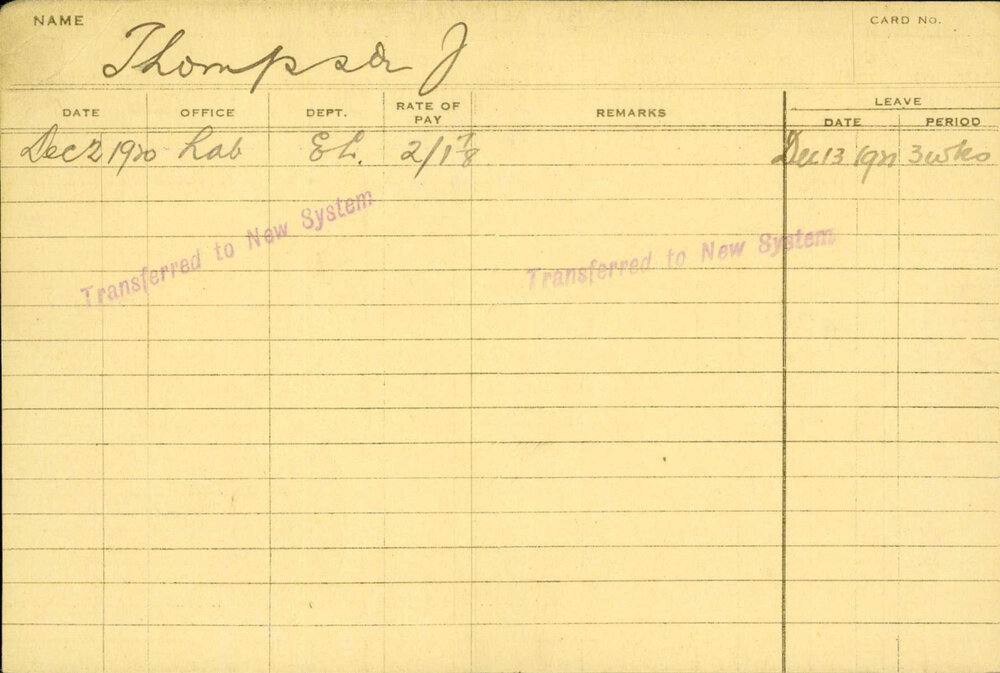 NAME Thompson J CARD No.
DATE OFFICE DEPT. RATE OF PAY REMARKS LEAVE
DATE PERIOD
Dec 2 1920 Lab El. 2/1 7/8 Dec 13 1921 3 wks
Transferred to New System
Transferred to New System